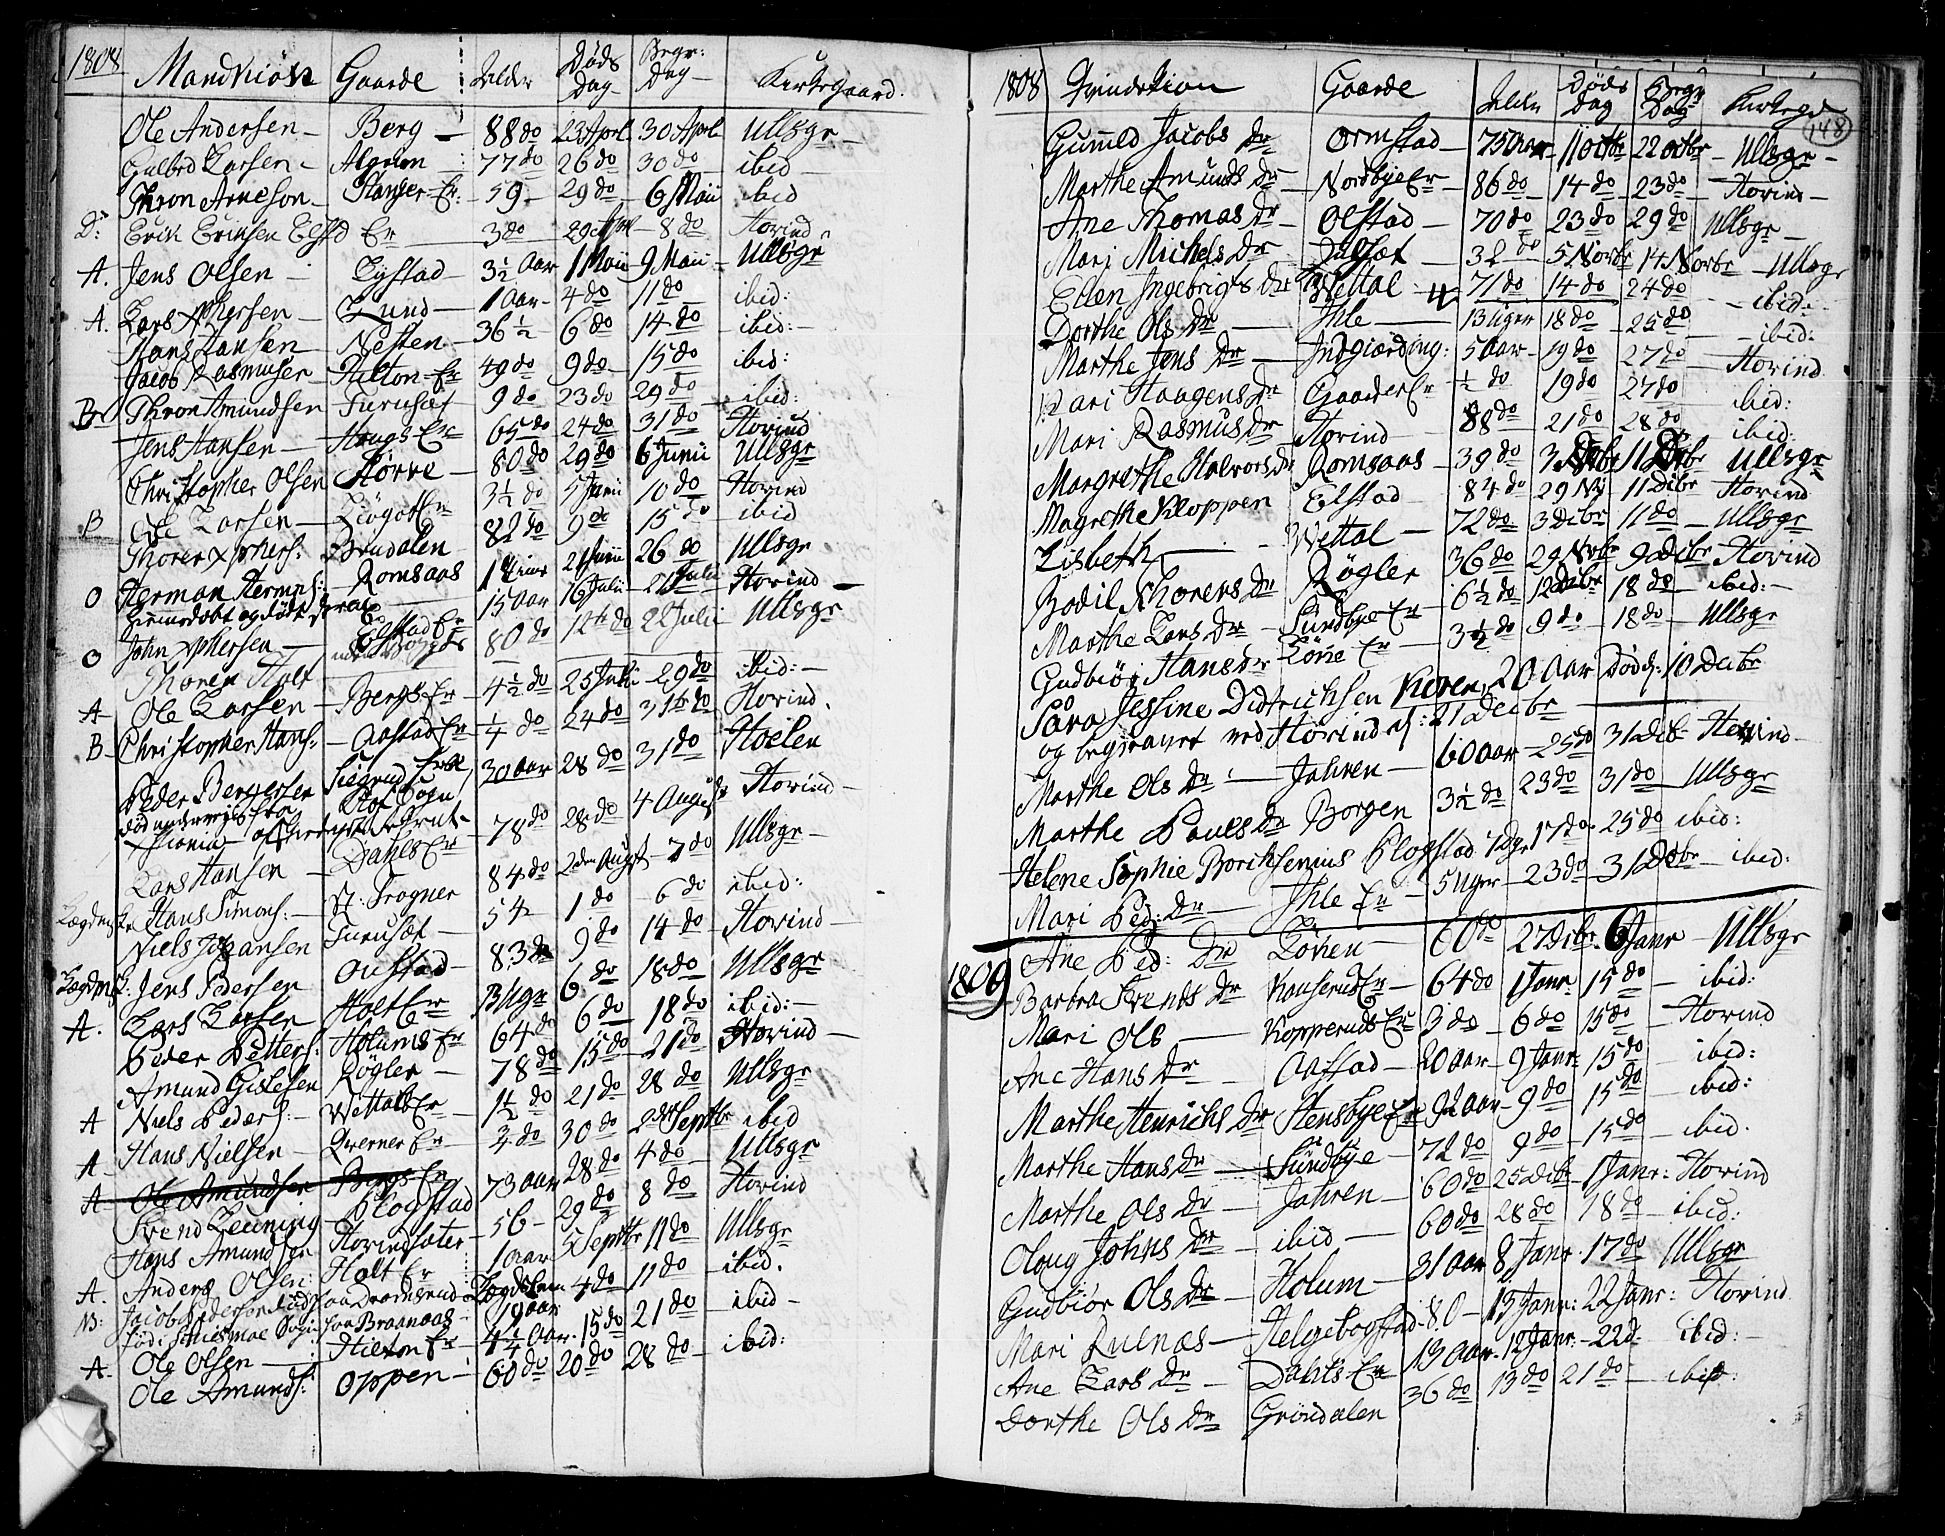 1808 Mandkiön Gaarde Alder Døds Dag Begr: Dag Kirkegaard.
Ole Andersen Berg 88 do 23 April 30 April Ullsgr
Gulbrd Larsen 77 do 26 do 30 do ibid
Thron Arneson Stanger Er: 59 29 do 6 Maii ibid
D: Erik Eriksen Elstd Er 3 do 29 April 8 do Hovind
A. Jens Olsen Lystad 3½ Aar 1 Maii 9 Maii Ullsgr
A. Lars Xphersen Lund 1 Aar 4 do 11 do ibid:
Hans Hansen Nesten 36½ 6 do 14 do ibid:
Jacob Rasmusen Hilton Er 49 do 9 do 15 do ibid:
B Thron Amundsen Furuset 9 do 23 do 29 do ibid:
Jens Hansen Haugs Er 65 do 24 do 31 do Hovind
Christopher Olsen Horve 80 do 29 do 6 Junii Ullsgr
B Ole Larsen 3½ do 5 Junii 10 do Hovind
Thorer Xphers: Brudalen 82 do 9 do 15 do ibid
O Herman Hermns: Romsaas 21 Junii 26 do Ullsgr
hiemdøbt og død
O John Xphersen Elstad Er 15 Aar 16 Julii 21 Julii Hovind
Thorer Holt 80 do 12te do 22 Julii Ullsgr
A Ole Larsen Bergs Er 4½ do 25 Julii 29 do ibid:
B Christopher Hans: Aastad Er ¼ do 24 do 31te do Hovind.
Peder Bergersen 30 Aar 28 do 31 do Hoelen
død underveis fra
Lars Hansen Dahls Er 78 do 28 do 4 August Hovind
Hans Simons: Pl: Trogner 84 do 2den Augst 7 do Ullsgr
Niels Johansen Furuset 54 1 do 6 do ibid:
Jens Pedersen Oustad 83 do 9 do 14 do Hovind
A. Lars Larsen Holt Er 13 Ugr 6 do 18 do Ullsgr
Peder Petters: Holums Er 64 do 6 do 18 do ibid:
Amund Gislesen Røgler 78 do 15 do 21 do Hovind
A Niels Peders: Wettals Er 1½ do 21 do 28 do Ullsgr
A Hans Nielsen Qverner Er 3 do 30 do 2 Septbr ibid
A Ole Amundsen Bergs Er
Svend Leuning Blogstad 73 Aar 28 do 4 do Ullsgr
Hans Amundsen Hovindsæter 56 29 do 8 do Hovind
A. Anders Olsen Holt Er 1 Aar 5 Septbr 11 do Ullsgr
Jacob Pedersen Lægdslem 4 do 11 do ibid.
Braanaas 19 Aar 15 do 21 do ibid
A. Ole Olsen Hilton Er 4¼ Aar
Ole Amunds: Oppen 60 do 20 do 28 do ibid:
1808 Qvindekion Gaarde Alder Døds Dag Begr Dag Kirkegd
148
Gunned Jacobs Dr Ormstad 75 Aar 11 Octbr 22 Octbr Ullsgr
Marthe Amunds Dr Nordbye Er 86 do 14 do 23 do Hovind
Ane Thomas Dr Olstad 70 do 23 do 29 do Ullsgr
Mari Michels Dr 32 do 5 Novbr 14 Novbr Ullsgr
Ellen Ingebrigts Dr Wettal 71 do 14 do 24 do ibid:
Dorthe Ols Dr Ihle 13 Uger 18 do 25 do ibid:
Marthe Jens Dr Indgiærding: 5 Aar 19 do 27 do Hovind
Kari Haagens Dr Gaarder Er ½ do 19 do 27 do ibid:
Mari Rasmus Dr Hovind 88 do 21 do 28 do ibid:
Margrethe Halvors Dr Romsaas 39 do 3 Decbr 11 Decbr Ullsgr
Magrethe Kloppen Elstad 84 do 29 Nv 11 Decbr Hovind
Lisbeth Wettal 72 do 3 Decbr 11 do Ullsgr
Bodil Thorers Dr Røgler 36 do 29 Novbr 9 Decbr Hovind
Marthe Lars Dr Sundbye Er 6½ do 12 Decbr 18 do ibid:
Gudbiør Hans Dr Er 3½ do 9 do 18 do Ullsgr
Sara Jessine Didrichsen 20 Aar Død d: 10 Decbr
og begraves ved Hovind d: 21 Decbr
Marthe Ols Dr Jahren 60 Aar 25 do 31 Decbr Hovind
Marthe Pauls Dr Borgen 3½ do 23 do 31 do Ullsgr
Helene Sophie Borchsenius Blogstad 7 Dgr 17 do 25 do ibid:
Mari Ped: Dr Ihle Er 5 Uger 23 do 31 Decbr ibid:
Ane Ped: Dr Løven 60 do 27 Decbr 6 Janr Ullsgr
1809 Barbra Svends Dr Kauserud Er 64 do 1 Janr 15 do ibid:
Mari Ols Kopperuds Er 3 do 6 do 15 do Hovind
Ane Hans Dr Aastad 20 Aar 9 Janr 15 do ibid:
Marthe Henrichs Dr Stensbye Er 92 Aar 9 do 15 do ibid:
Marthe Hans Dr Sundbye 72 do 9 do 15 do ibid.
Marthe Ols Dr Jahren 60 do 25 Decbr 1 Janr: Hovind
Oloug Johns Dr ibid 60 do 28 do 18 do ibid:
Gudbiør Ols Dr Holum 31 Aar 8 Janr. 17 do Ullsgr
Mari Ruenas Helgebogstad 80 15 Janr: 22 Janr: Hovind
Ane Lars Dr Dahls Er 13 Aar 12 Janr 22 d. ibid:
Dorthe Ols Dr Gröndalen 36 do 13 do 21 do ibid: